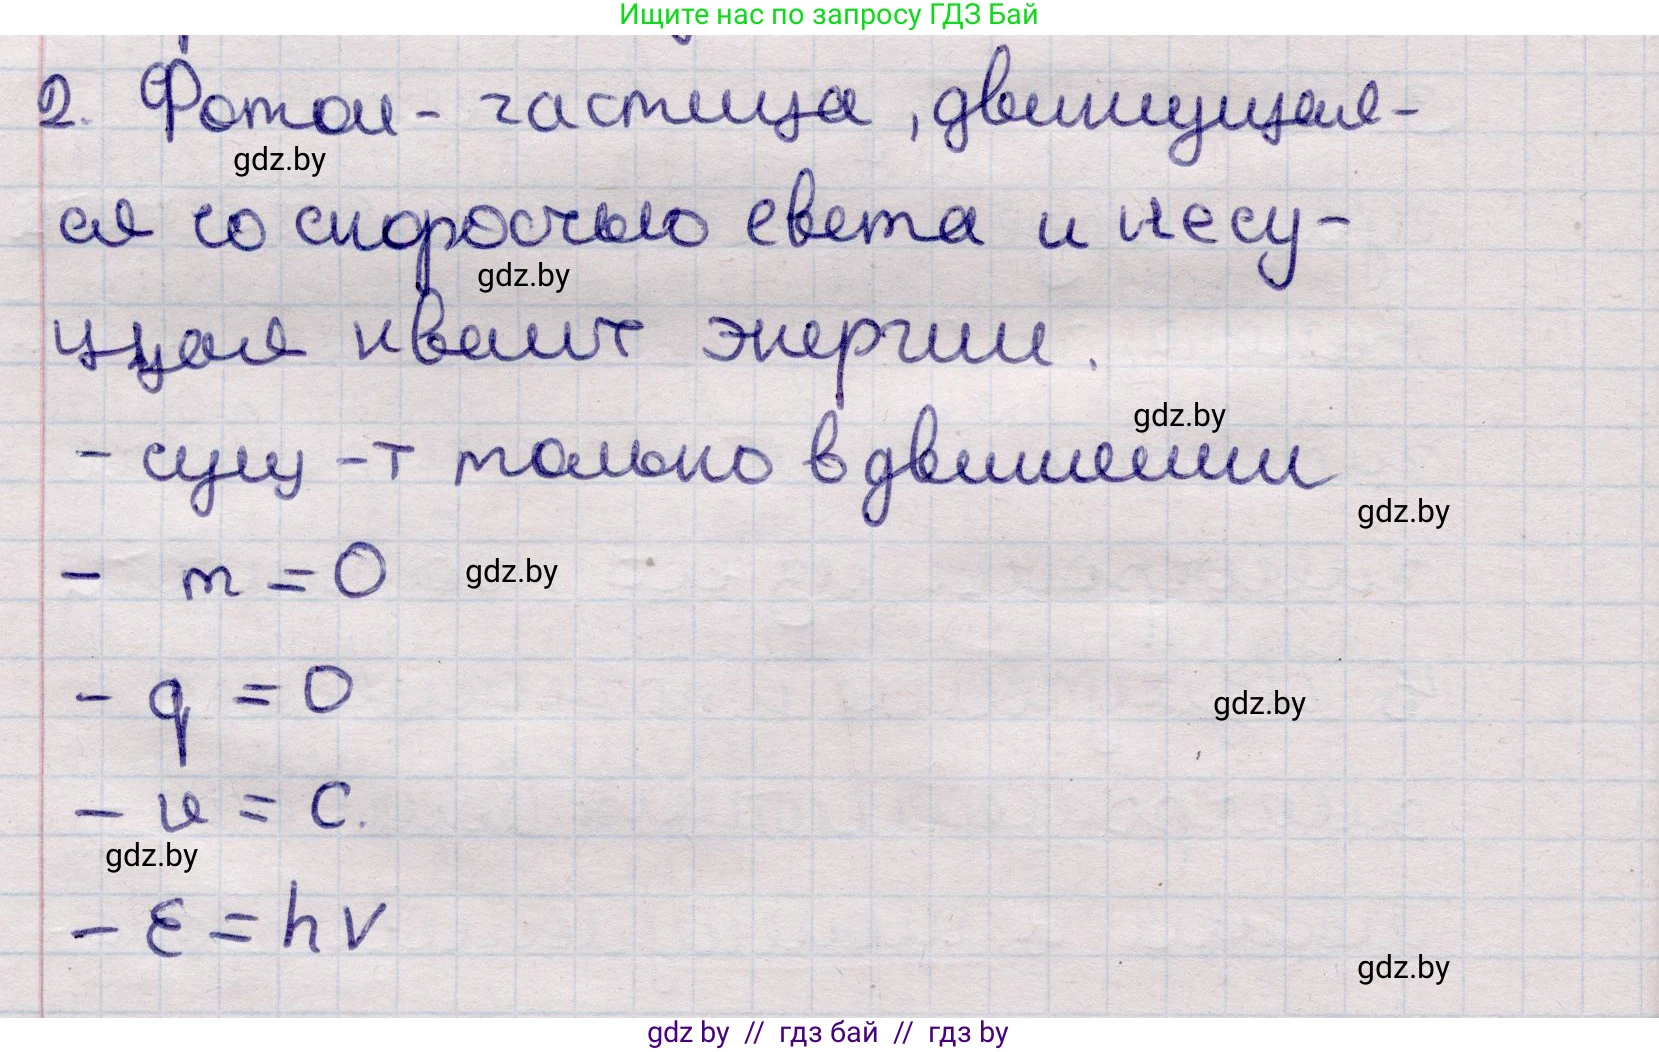 Ищите нас по запросу ГДЗ Бай
2. Фотон - частица, движущая-
ся со скоростью света и несу-
gdz.by
щая квант энергии.
gdz.by
- сущ-т только в движении
gdz.by
gdz.by
- m = 0 gdz.by
- q = 0 gdz.by
- v = c.
gdz.by
- ε = hν
gdz.by
gdz by // гдз бай // гдз by